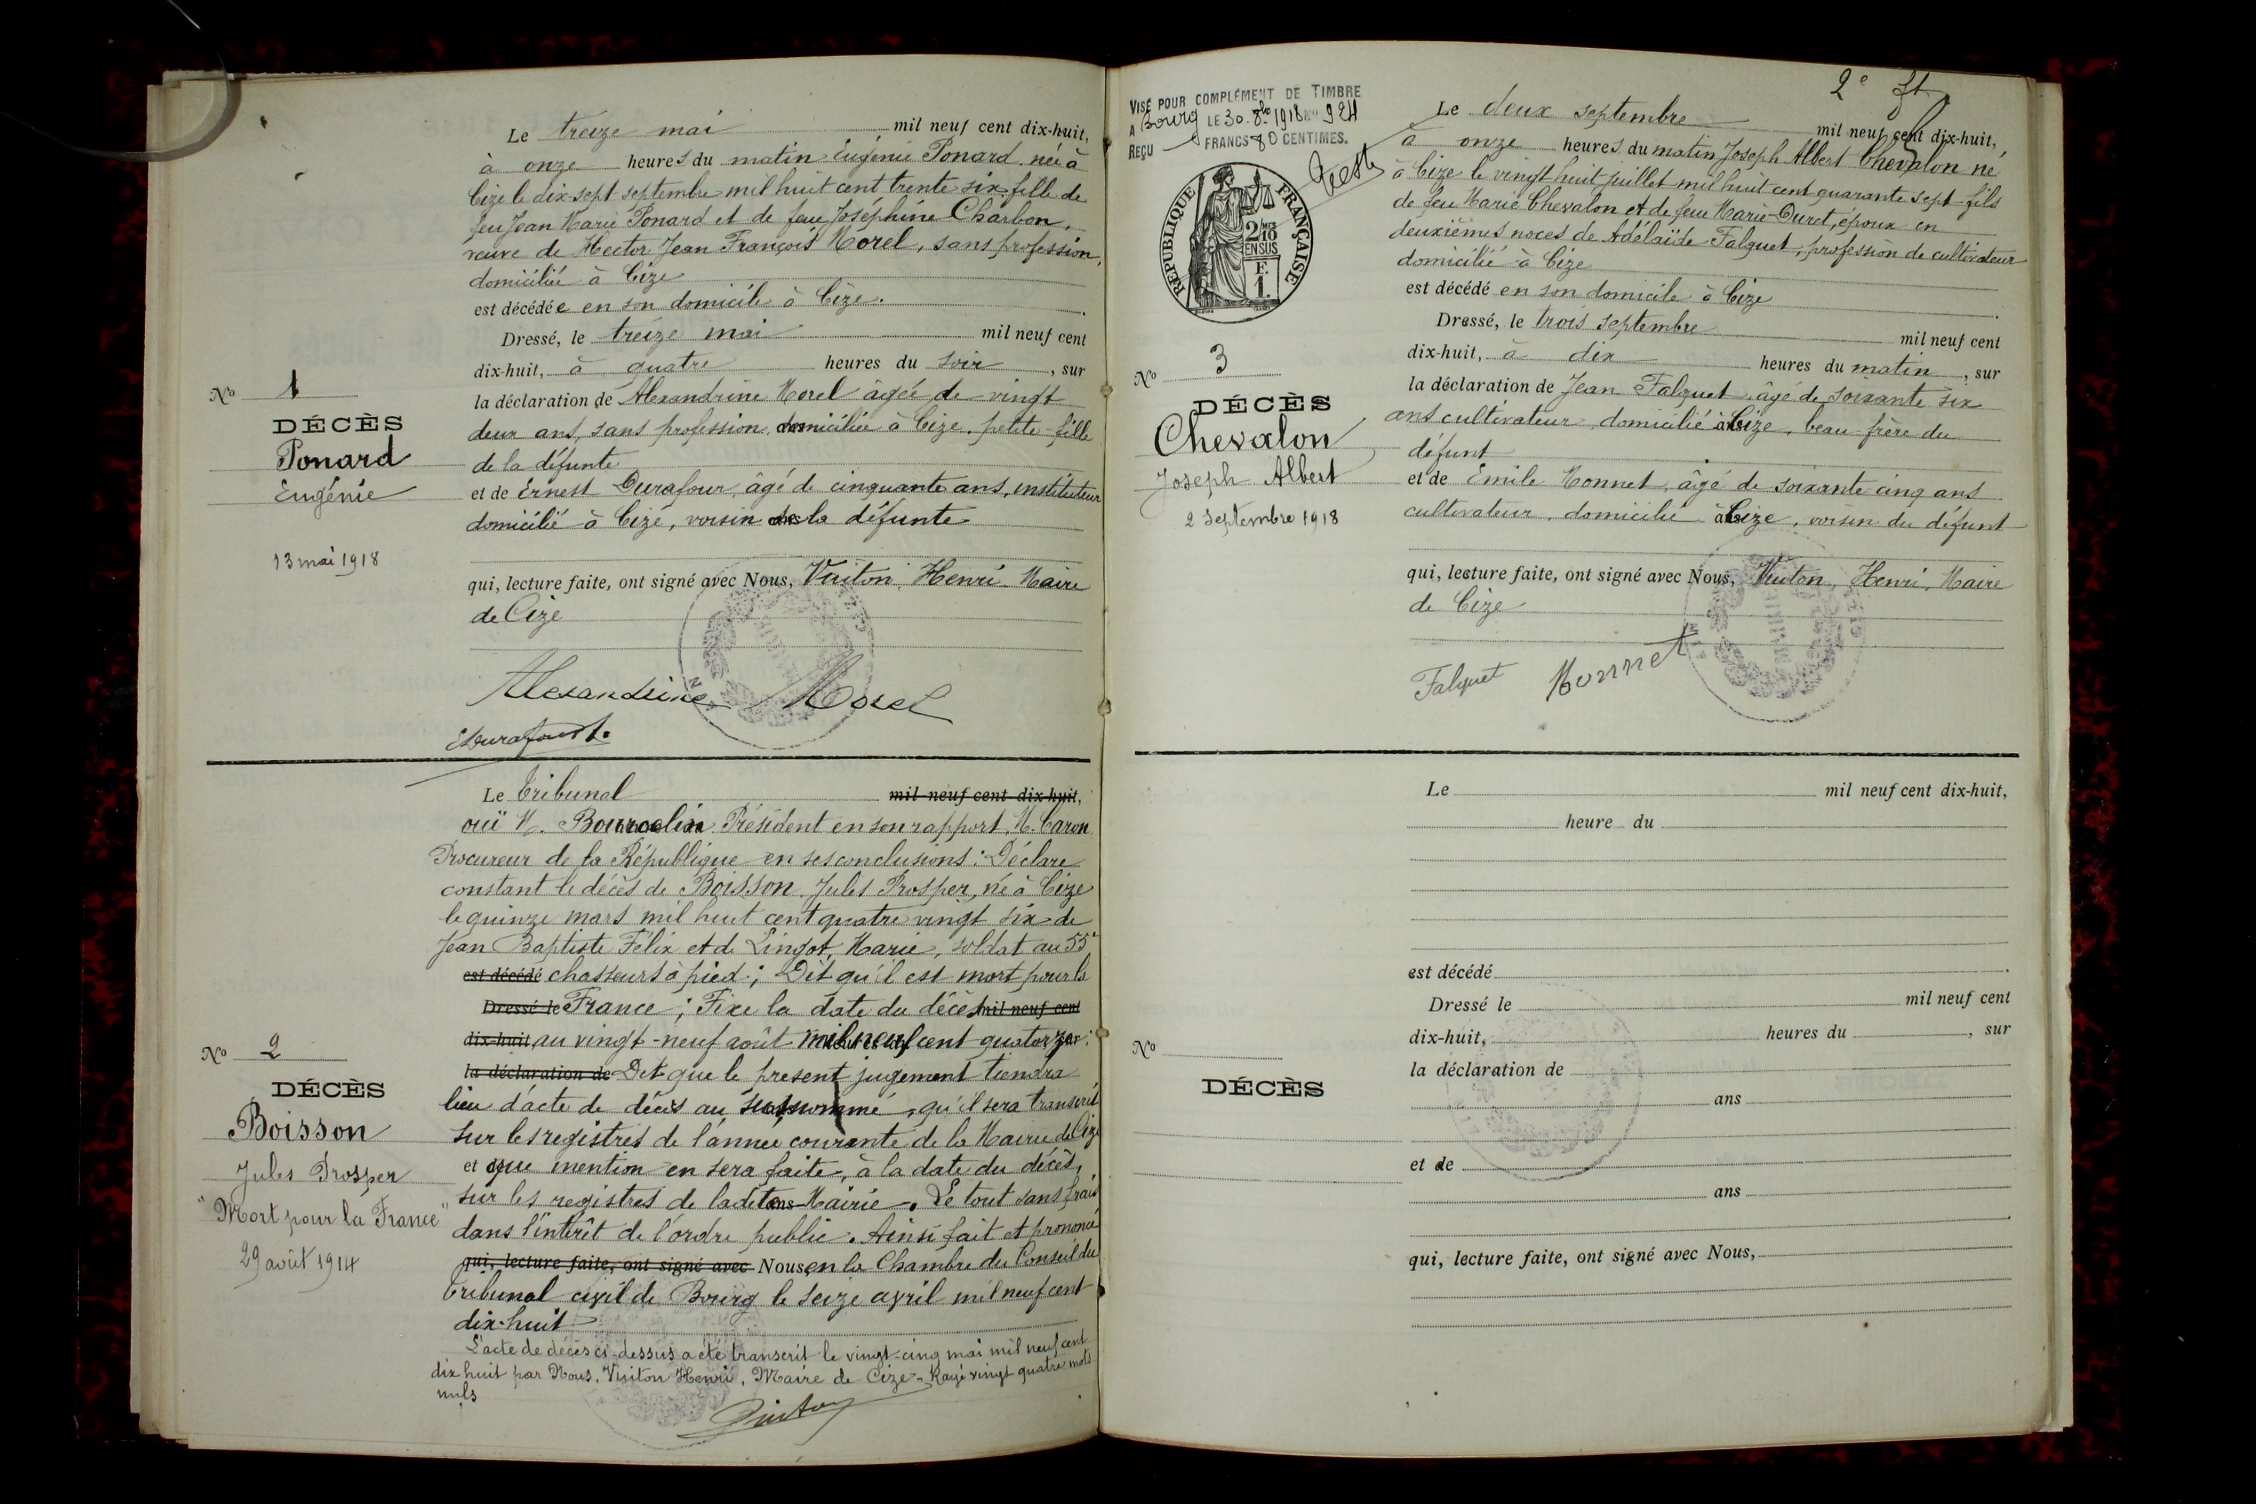 Le treize mai mil neuf cent dix-huit,
à onze heures du matin Eugénie Ponard née à
Cize le dix-sept septembre mil huit cent trente six fille de
feu Jean Marie Ponard et de feue Joséphine Charbon,
veuve de Hector Jean François Morel, sans profession,
domiciliée à Cize
est décédée en son domicile à Cize.
Dressé, le treize mai mil neuf cent
dix-huit, à quatre heures du soir, sur
la déclaration de Alexandrine Morel âgée de vingt
deux ans, sans profession, domiciliée à Cize, petite-fille
de la défunte
et de Ernest Durafour, âgé de cinquante ans, instituteur
domicilié à Cize, voisin de la défunte
qui, lecture faite, ont signé avec Nous, Vuiton, Henri Maire
de Cize
Alexandrine Morel
EDurafour
No 1
DÉCÈS
Ponard
Eugénie
13 mai 1918
Le Tribunal mil neuf cent dix-huit,
ouï M. Président en son rapport, M. Caron
Procureur de la République en ses conclusions : Déclare
constant le décès de Boisson Jules Prosper, né à Cize
le quinze mars mil huit cent quatre vingt six de
Jean Baptiste Félix et de Lingot, Marie, soldat au 55e
est décédé chasseurs à pied ; Dit qu'il est mort pour la
Dressé le France ; Fixe la date du décès mil neuf cent
dix-huit au vingt-neuf août mil neuf cent quatorze ;
la déclaration de Dit que le présent jugement tiendra
lieu d'acte de décès au susnommé, qu'il sera transcrit
sur les registres de l'année courante de la Mairie de Cize
et que mention en sera faite, à la date du décès,
sur les registres de ladite Mairie. Le tout sans frais
dans l'intérêt de l'ordre public. Ainsi fait et prononcé
qui, lecture faite, ont signé avec Nous, en la Chambre du Conseil du
Tribunal civil de Bourg le seize avril mil neuf cent
dix-huit
L'acte de décès ci-dessus a été transcrit le vingt-cinq mai mil neuf cent
dix huit par Nous, Vuiton Henri, Maire de Cize - Rayé vingt quatre mots
nuls
Vuiton
No 2
DÉCÈS
Boisson
Jules Prosper
"Mort pour la France"
29 août 1914
2e ft.
VISÉ POUR COMPLÉMENT DE TIMBRE
A Bourg LE 30 8bre 1918 No 924
REÇU FRANCS 80 CENTIMES.
RÉPUBLIQUE FRANÇAISE
2/10
EN SUS
F.
1.
No 3
DÉCÈS
Chevalon
Joseph Albert
2 septembre 1918
Le deux septembre mil neuf cent dix-huit,
à onze heures du matin Joseph Albert Chevalon né
à Cize le vingt huit juillet mil huit cent quarante sept fils
de feu Marie Chevalon et de feue Marie Curet, époux en
deuxièmes noces de Adélaïde Falquet, profession de cultivateur
domicilié à Cize
est décédé en son domicile à Cize
Dressé, le trois septembre mil neuf cent
dix-huit, à dix heures du matin, sur
la déclaration de Jean Falquet âgé de soixante six
ans cultivateur, domicilié à Cize, beau-frère du
défunt
et de Emile Monnet, âgé de soixante cinq ans
cultivateur, domicilié à Cize, voisin du défunt
qui, lecture faite, ont signé avec Nous, Vuiton, Henri, Maire
de Cize
Falquet Monnet
No
DÉCÈS
Le mil neuf cent dix-huit,
heure du
est décédé
Dressé le mil neuf cent
dix-huit, heures du , sur
la déclaration de
ans
et de
ans
qui, lecture faite, ont signé avec Nous,